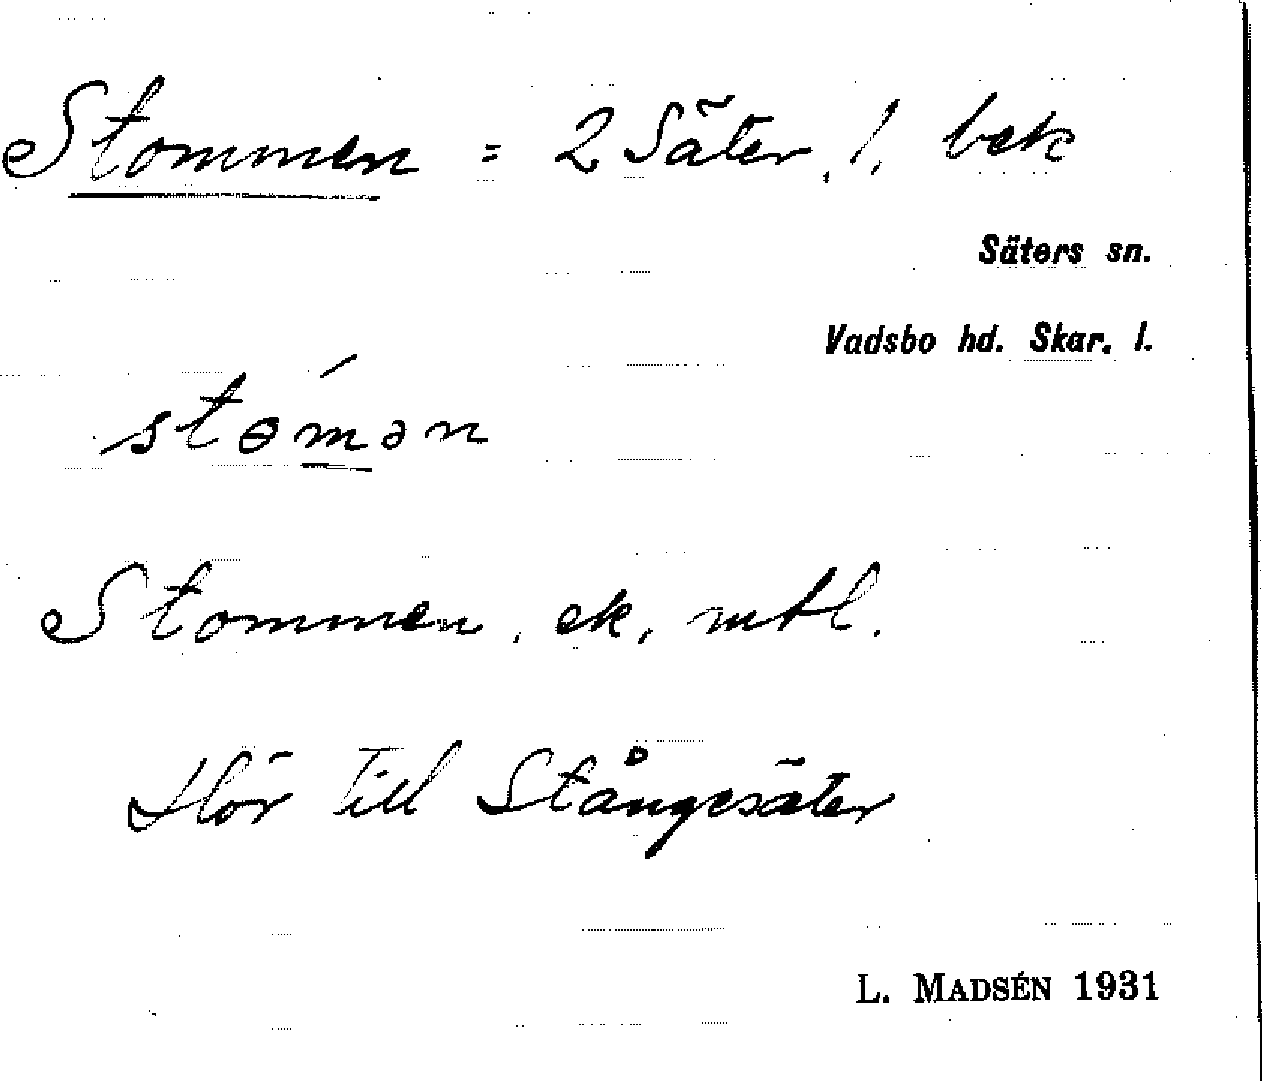 Stommen = 2 Säter, l. bek
Säters sn.
Vadsbo hd. Skar. l.
stɵ́mən
Stommen, ek, mtl.
Hör till Stångesäter
L. MADSÉN 1931